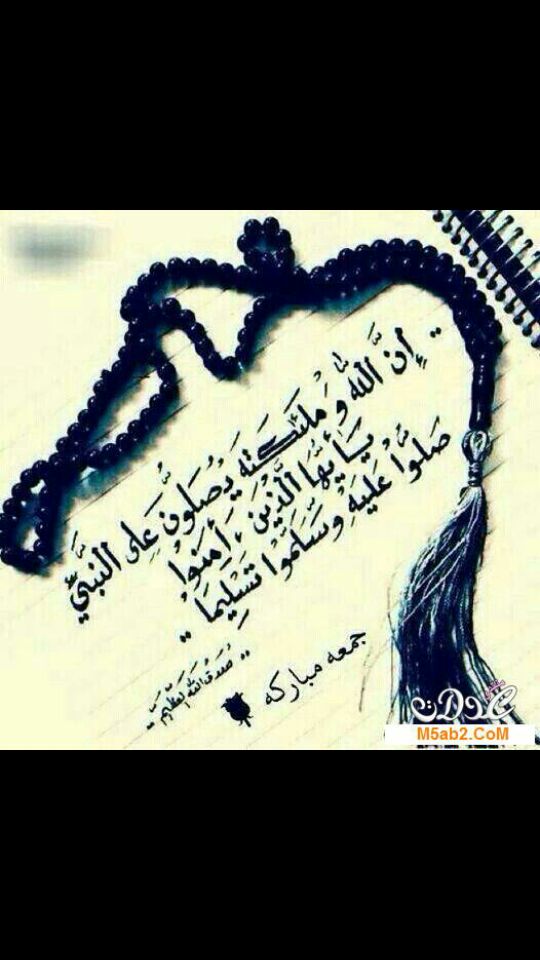 .. إِنَّ اللَّهَ وَمَلَٰئِكَتَهُ يُصَلُّونَ عَلَى النَّبِيِّ
يَا أَيُّهَا الَّذِينَ ءَامَنُوا
صَلُّوا عَلَيْهِ وَسَلِّمُوا تَسْلِيمًا ..
.. صدق الله العظيم ..
جمعه مباركه
عدلات
M5ab2.CoM